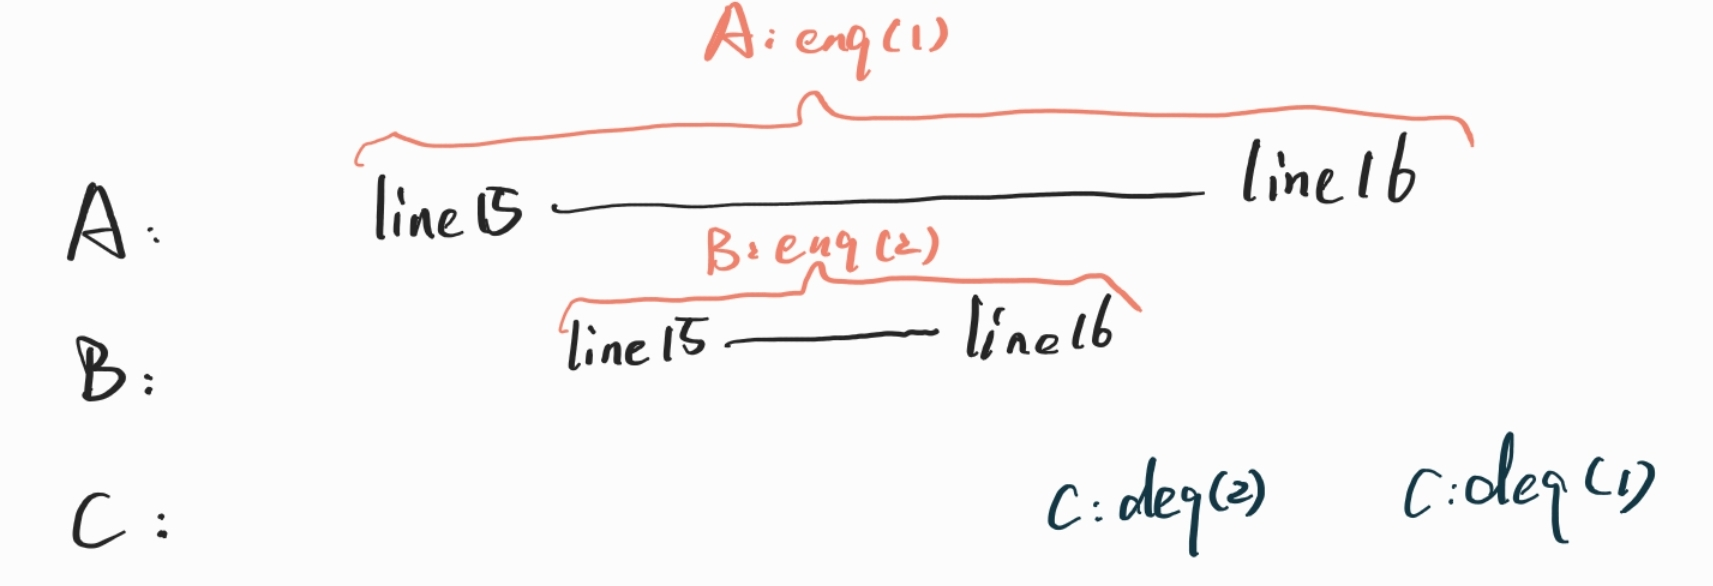 A: enq(1)
A: line 15 line 16
B: enq(2)
B: line 15 line 16
C: C: deq(2) C: deq(1)